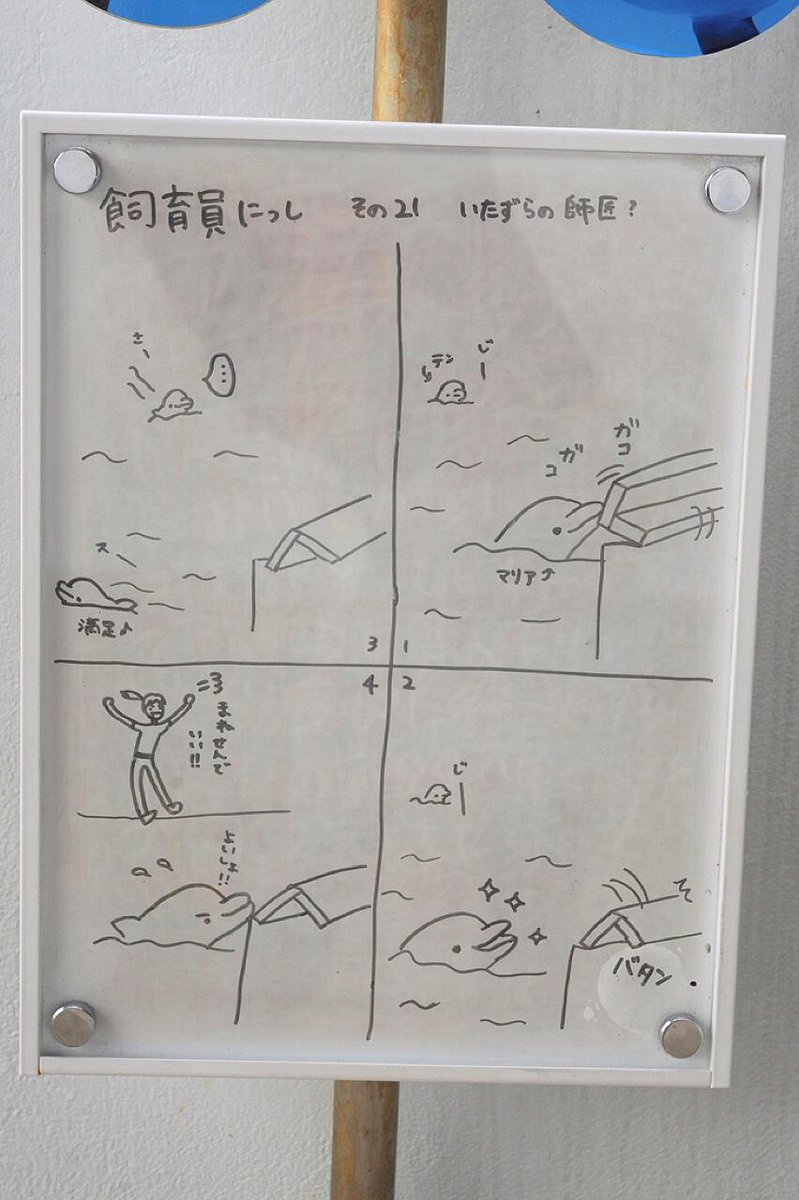 飼育員にっし その21 いたずらの師匠?
1
じー
テン
ガコ
ガコ
マリア↑
2
じー
バタン
3
さー
...
スー
満足♪
4
まねせんで
いい!!
よいしょ!!